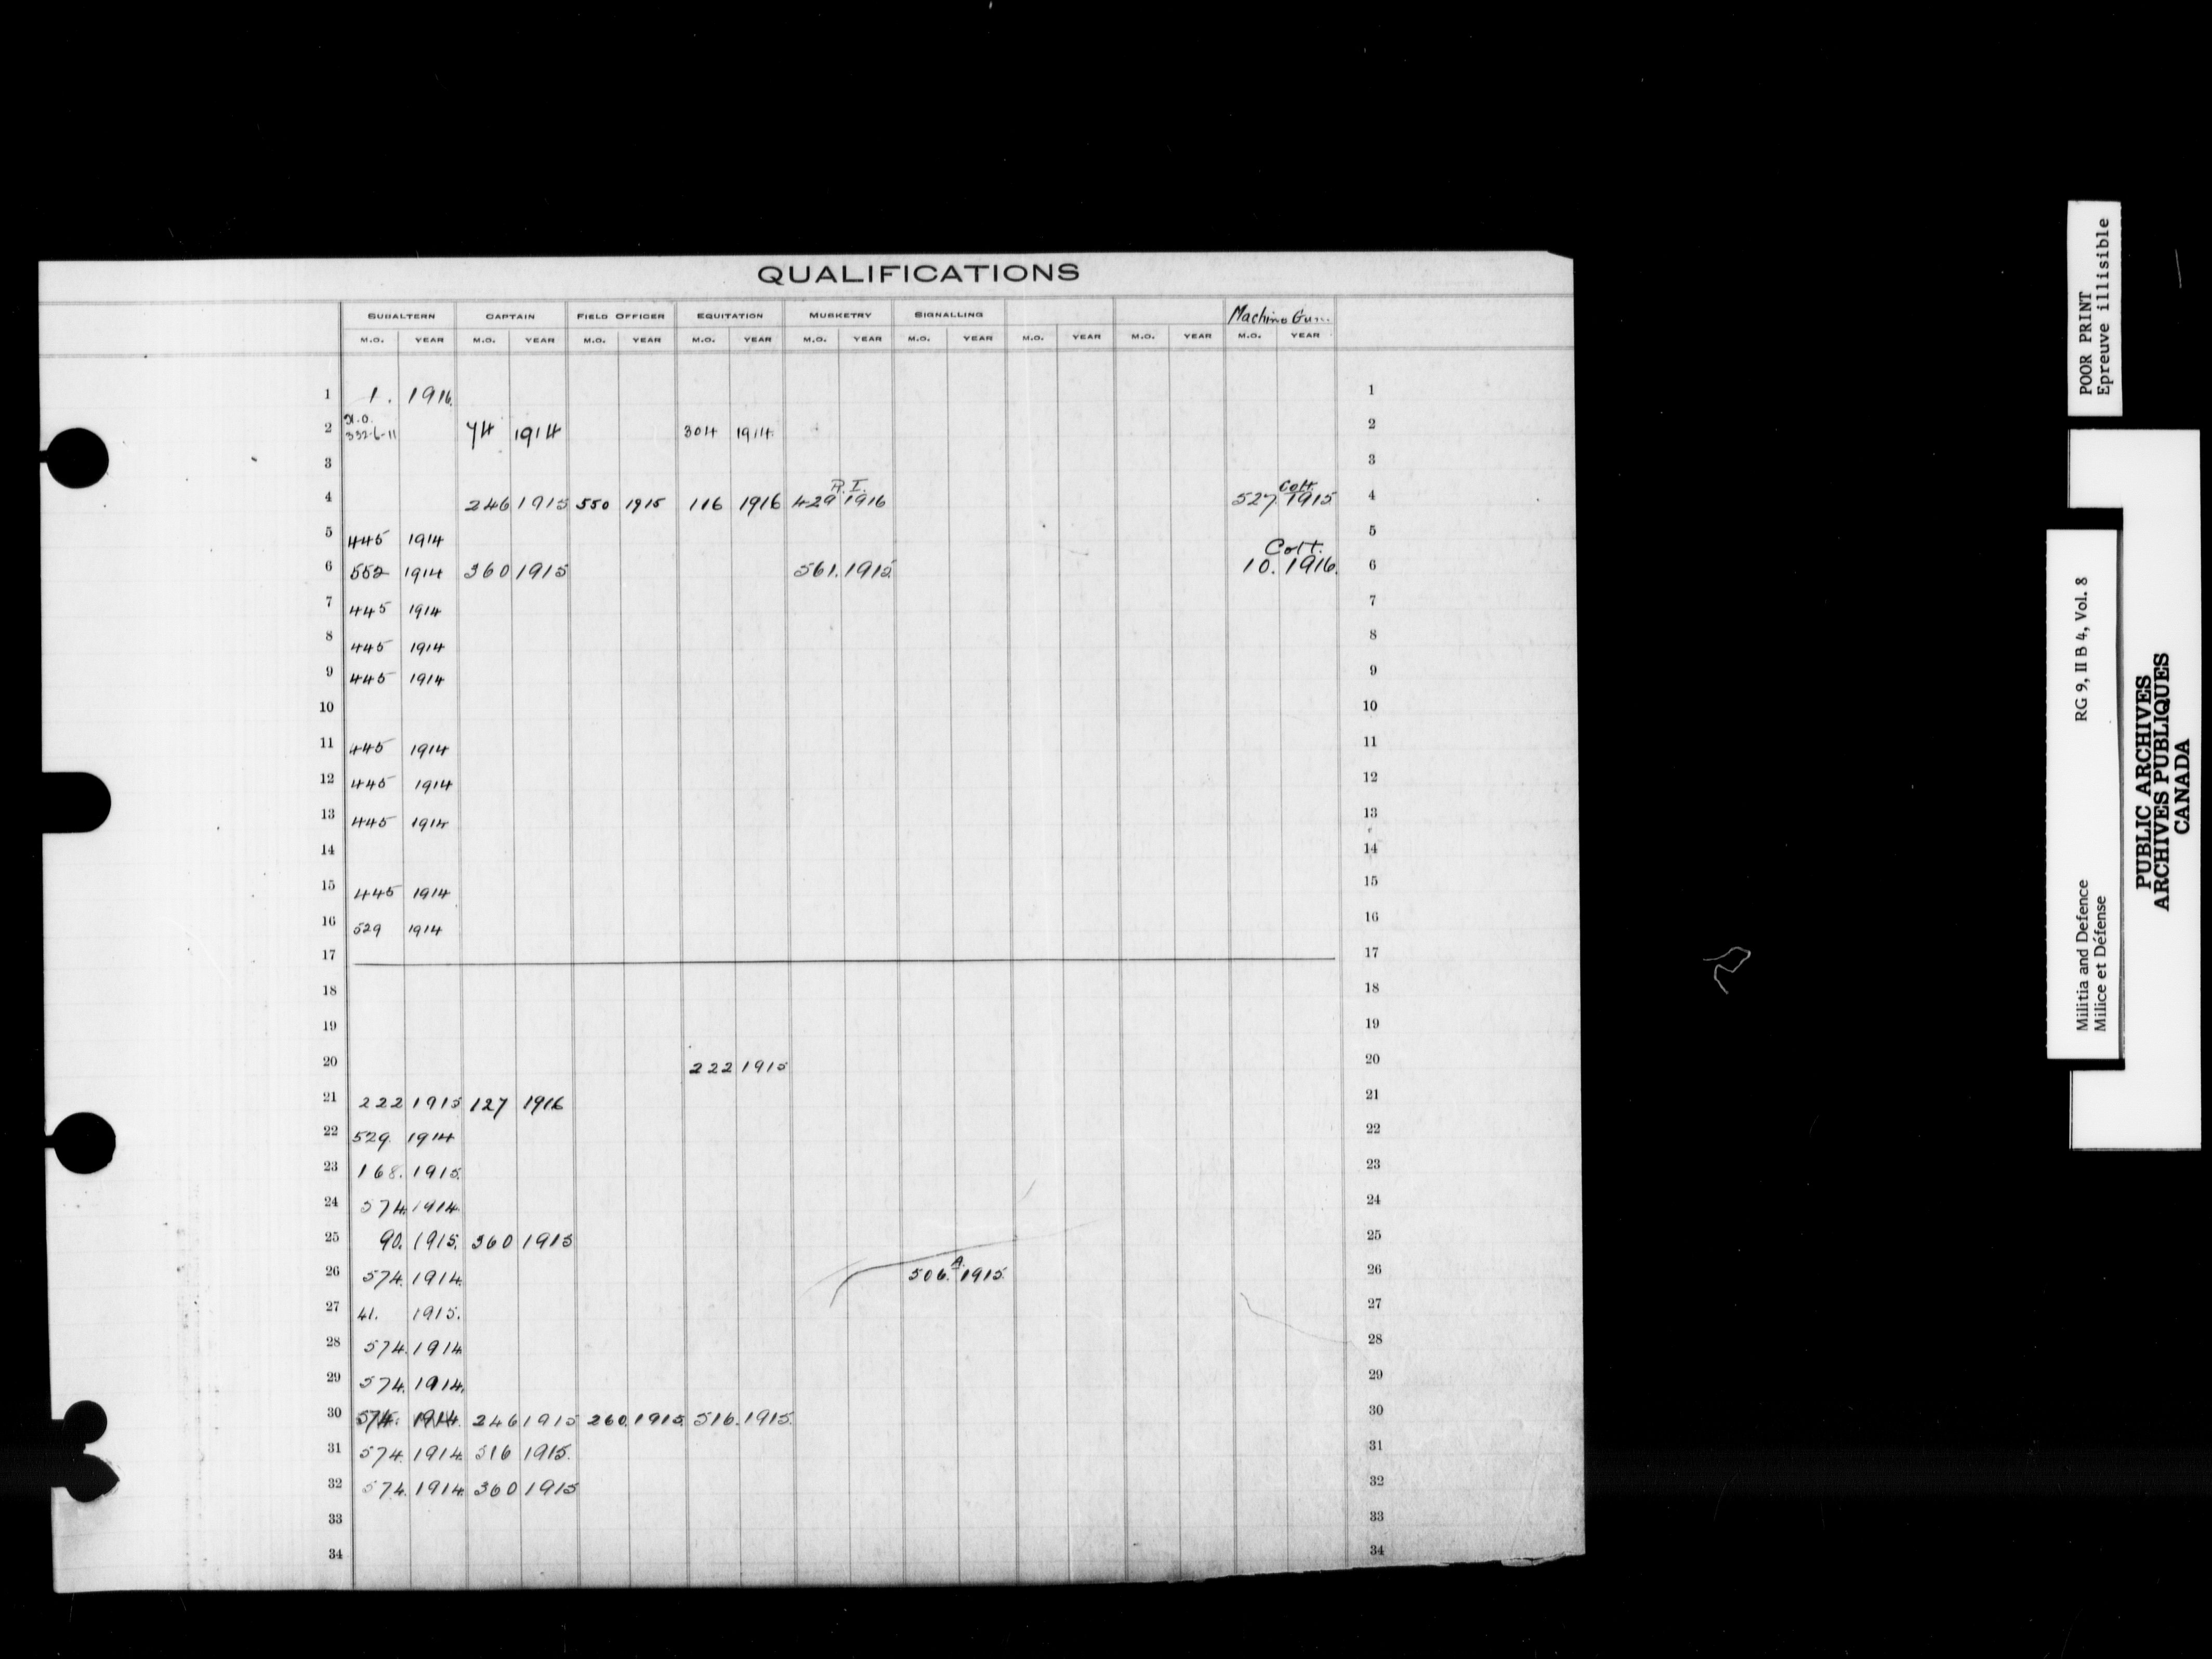 QUALIFICATIONS
SUBALTERN CAPTAIN FIELD OFFICER EQUITATION MUSKETRY SIGNALLING Machine Gun.
M.O. YEAR M.O. YEAR M.O. YEAR M.O. YEAR M.O. YEAR M.O. YEAR M.O. YEAR M.O. YEAR M.O. YEAR
1 1. 1916. 1
2 332-6-11 74 1914 304 1914 2
3 3
R.I. Colt.
4 246 1915 550 1915 116 1916 429 1916 527. 1915 4
5 445 1914 5
Colt.
6 552 1914 360 1915 561. 1915 10. 1916. 6
7 445 1914 7
8 445 1914 8
9 445 1914 9
10 10
11 445 1914 11
12 445 1914 12
13 445 1914 13
14 14
15 445 1914 15
16 529 1914 16
17 17
18 18
19 19
20 222 1915 20
21 222 1915 127 1916 21
22 529. 1914 22
23 168. 1915. 23
24 574. 1914. 24
25 90. 1915. 360 1915 25
26 574. 1914. 506. A. 1915. 26
27 41. 1915. 27
28 574. 1914 28
29 574. 1914. 29
30 574. 1914. 246 1915 260. 1915. 516. 1915. 30
31 574. 1914. 316 1915. 31
32 574. 1914. 360 1915 32
33 33
34 34
POOR PRINT
Epreuve illisible
Militia and Defence RG 9, II B 4, Vol. 8
Milice et Défense
PUBLIC ARCHIVES
ARCHIVES PUBLIQUES
CANADA